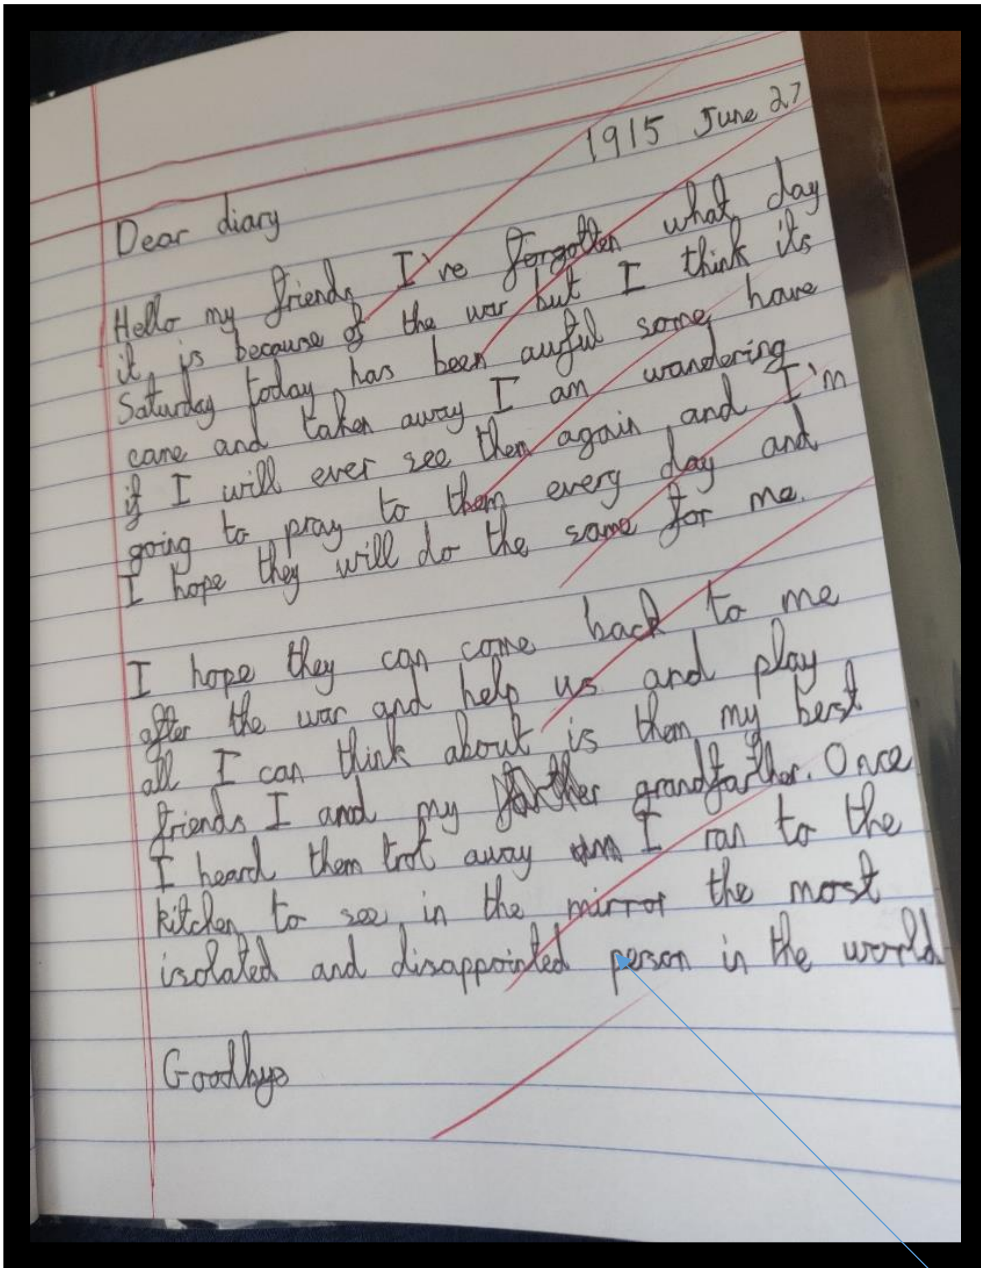 1915 June 27
Dear diary
Hello my friends I've forgotten what day
it is because of the war but I think its
Saturday today has been awful some have
came and taken away I am wandering
if I will ever see them again and I'm
going to pray to them every day and
I hope they will do the same for me.
I hope they can come back to me
after the war and help us and play
all I can think about is them my berst
friends I and my grandfarther. Once
I heard them trot away I ran to the
kitchen to see in the mirror the most
isolated and disappointed person in the world
Goodbye